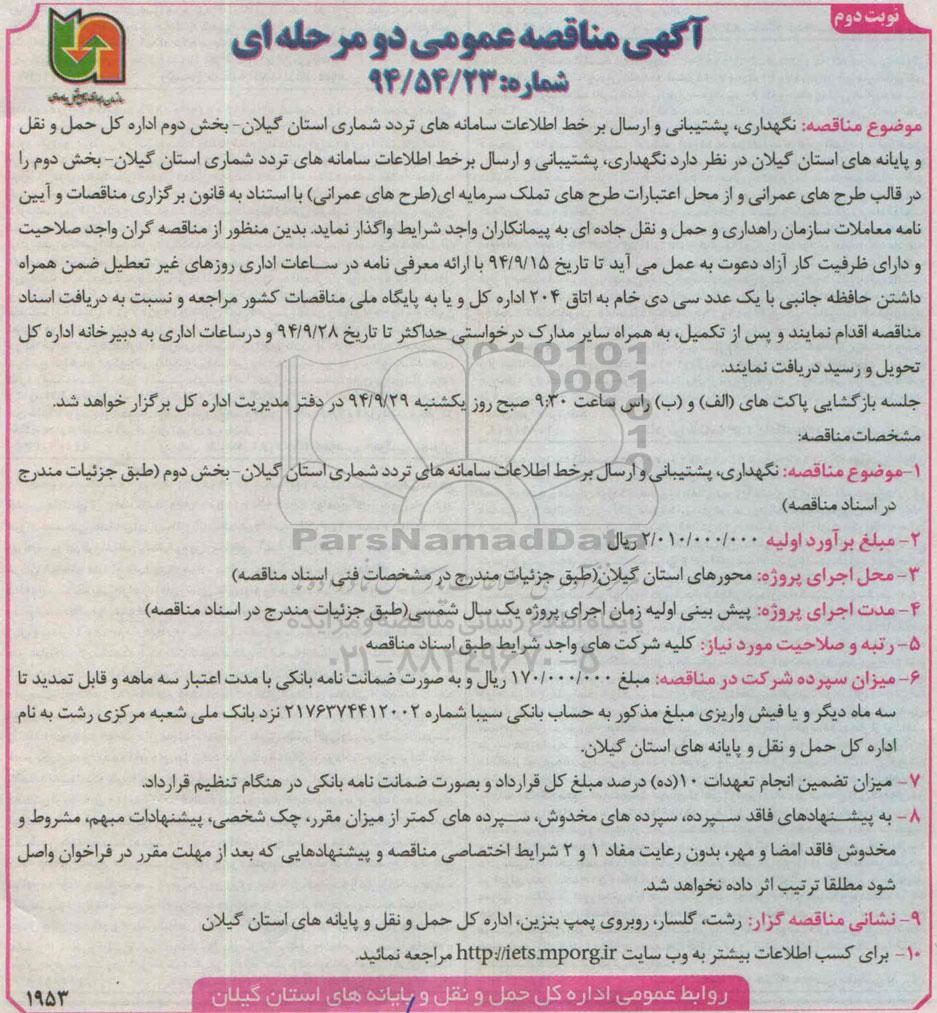 نوبت دوم
آگهی مناقصه عمومی دو مرحله ای
شماره: ۹۴/۵۴/۲۳
موضوع مناقصه: نگهداری، پشتیبانی و ارسال بر خط اطلاعات سامانه های تردد شماری استان گیلان- بخش دوم اداره کل حمل و نقل
و پایانه های استان گیلان در نظر دارد نگهداری، پشتیبانی و ارسال برخط اطلاعات سامانه های تردد شماری استان گیلان- بخش دوم را
در قالب طرح های عمرانی و از محل اعتبارات طرح های تملک سرمایه ای(طرح های عمرانی) با استناد به قانون برگزاری مناقصات و آیین
نامه معاملات سازمان راهداری و حمل و نقل جاده ای به پیمانکاران واجد شرایط واگذار نماید. بدین منظور از مناقصه گران واجد صلاحیت
و دارای ظرفیت کار آزاد دعوت به عمل می آید تا تاریخ ۹۴/۹/۱۵ با ارائه معرفی نامه در ساعات اداری روزهای غیر تعطیل ضمن همراه
داشتن حافظه جانبی با یک عدد سی دی خام به اتاق ۲۰۴ اداره کل و یا به پایگاه ملی مناقصات کشور مراجعه و نسبت به دریافت اسناد
مناقصه اقدام نمایند و پس از تکمیل، به همراه سایر مدارک درخواستی حداکثر تا تاریخ ۹۴/۹/۲۸ و درساعات اداری به دبیرخانه اداره کل
تحویل و رسید دریافت نمایند.
جلسه بازگشایی پاکت های (الف) و (ب) راس ساعت ۹:۳۰ صبح روز یکشنبه ۹۴/۹/۲۹ در دفتر مدیریت اداره کل برگزار خواهد شد.
مشخصات مناقصه:
۱-موضوع مناقصه: نگهداری، پشتیبانی و ارسال برخط اطلاعات سامانه های تردد شماری استان گیلان- بخش دوم (طبق جزئیات مندرج
در اسناد مناقصه)
۲- مبلغ برآورد اولیه ۲/۰۱۰/۰۰۰/۰۰۰ ریال
ParsNamadData
۳- محل اجرای پروژه: محورهای استان گیلان(طبق جزئیات مندرج در مشخصات فنی اسناد مناقصه)
۴- مدت اجرای پروژه: پیش بینی اولیه زمان اجرای پروژه یک سال شمسی(طبق جزئیات مندرج در اسناد مناقصه)
پایگاه اطلاع رسانی مناقصه و مزایده
۵- رتبه و صلاحیت مورد نیاز: کلیه شرکت های واجد شرایط طبق اسناد مناقصه
۰۲۱-۸۸۳۴۹۶۷۰-۵
۶- میزان سپرده شرکت در مناقصه: مبلغ ۱۷۰/۰۰۰/۰۰۰ ریال و به صورت ضمانت نامه بانکی با مدت اعتبار سه ماهه و قابل تمدید تا
سه ماه دیگر و یا فیش واریزی مبلغ مذکور به حساب بانکی سیبا شماره ۲۱۷۶۳۷۴۴۱۲۰۰۲ نزد بانک ملی شعبه مرکزی رشت به نام
اداره کل حمل و نقل و پایانه های استان گیلان.
۷- میزان تضمین انجام تعهدات ۱۰(ده) درصد مبلغ کل قرارداد و بصورت ضمانت نامه بانکی در هنگام تنظیم قرارداد.
۸- به پیشنهادهای فاقد سپرده، سپرده های مخدوش، سپرده های کمتر از میزان مقرر، چک شخصی، پیشنهادات مبهم، مشروط و
مخدوش فاقد امضا و مهر، بدون رعایت مفاد ۱ و ۲ شرایط اختصاصی مناقصه و پیشنهادهایی که بعد از مهلت مقرر در فراخوان واصل
شود مطلقا ترتیب اثر داده نخواهد شد.
۹- نشانی مناقصه گزار: رشت، گلسار، روبروی پمپ بنزین، اداره کل حمل و نقل و پایانه های استان گیلان
۱۰- برای کسب اطلاعات بیشتر به وب سایت http://iets.mporg.ir مراجعه نمائید.
روابط عمومی اداره کل حمل و نقل و پایانه های استان گیلان
۱۹۵۳